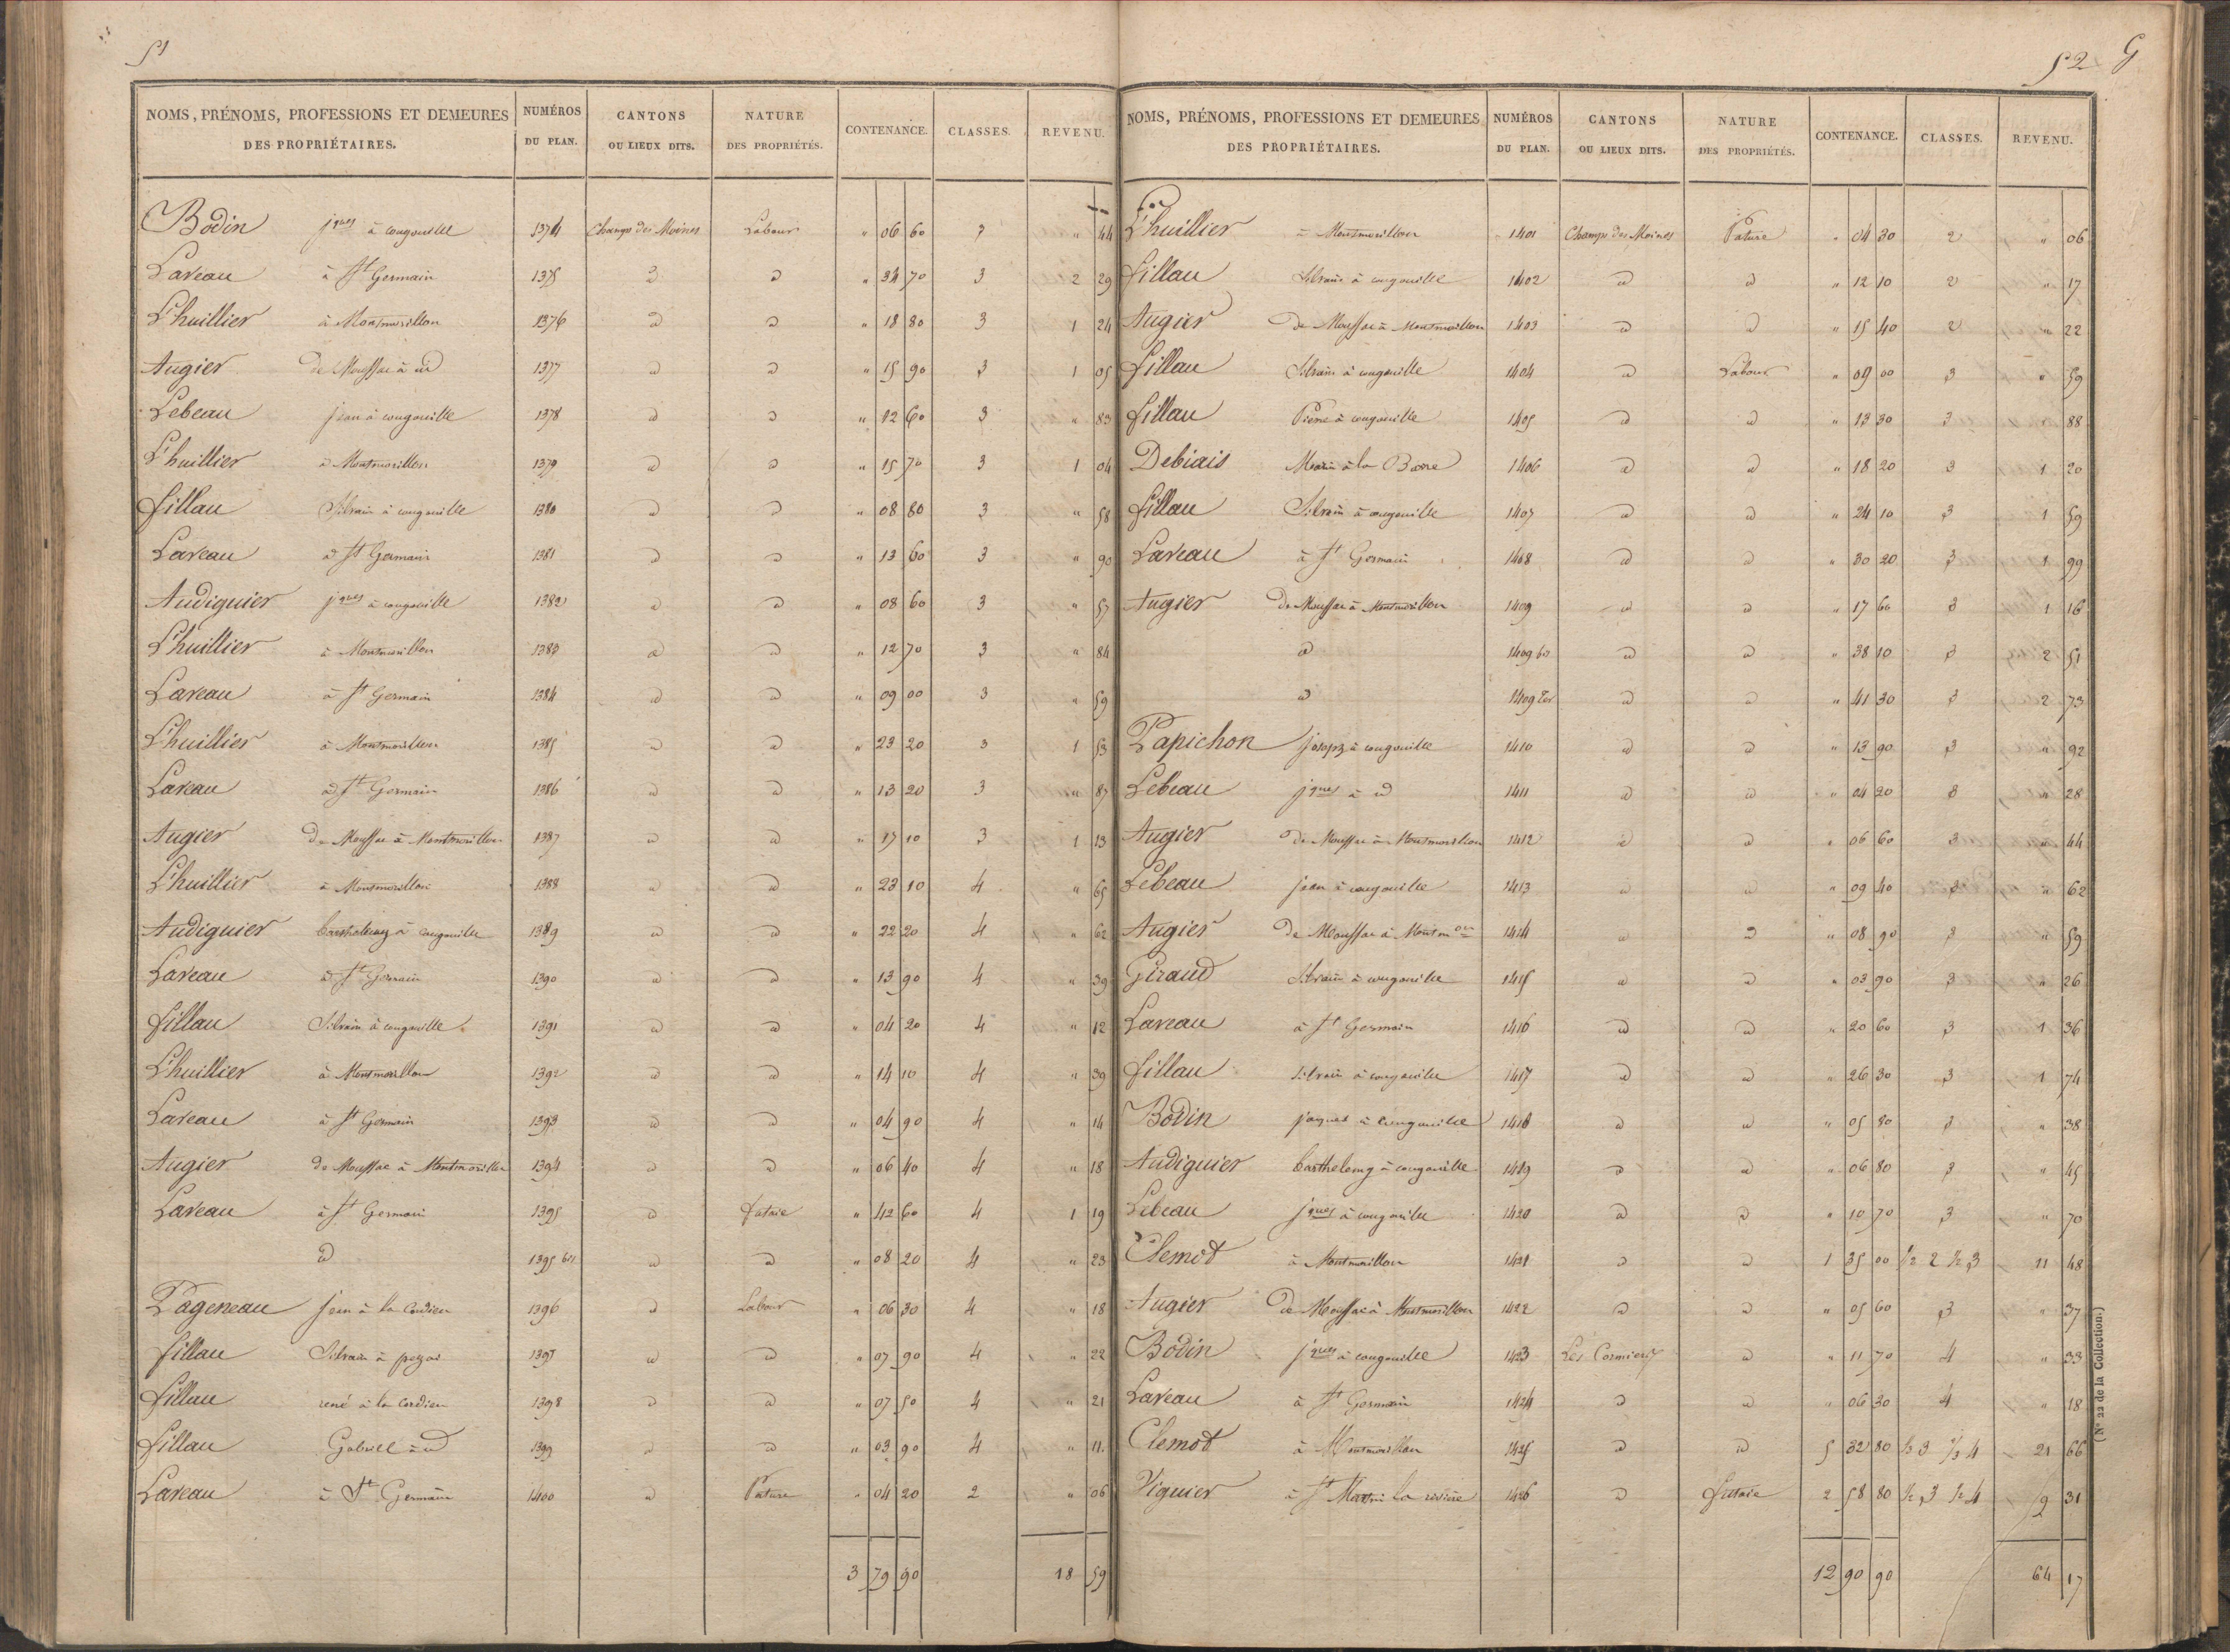 51
NOMS, PRÉNOMS, PROFESSIONS ET DEMEURES DES PROPRIÉTAIRES. NUMÉROS DU PLAN. CANTONS OU LIEUX DITS. NATURE DES PROPRIÉTÉS. CONTENANCE. CLASSES. REVENU.
Bodin jques à cougouille 1374 Champs des Moines Labour " 06 60 3 " 44
Laveau à St Germain 1375 d d " 34 70 3 2 29
L'huillier à Montmorillon 1376 d d " 18 80 3 1 24
Augier de Moussac à id 1377 d d " 15 90 3 1 05
Lebeau jean à cougouille 1378 d d " 12 60 3 " 83
L'huillier à Montmorillon 1379 d d " 15 70 3 1 04
fillau Silvain à cougouille 1380 d d " 08 80 3 " 58
Laveau à St Germain 1381 d d " 13 60 3 " 90
Audiguier jques à cougouille 1382 d d " 08 60 3 " 57
L'huillier à Montmorillon 1383 d d " 12 70 3 " 84
Laveau à St Germain 1384 d d " 09 00 3 " 59
L'huillier à Montmorillon 1385 d d " 23 20 3 1 53
Laveau à St Germain 1386 d d " 13 20 3 " 87
Augier de Moussac à Montmorillon 1387 d d " 17 10 3 1 13
L'huillier à Montmorillon 1388 d d " 23 10 4 " 65
Audiguier barthelemy à cougouille 1389 d d " 22 20 4 " 62
Laveau à St Germain 1390 d d " 13 90 4 " 39
fillau Silvain à cougouille 1391 d d " 04 20 4 " 12
L'huillier à Montmorillon 1392 d d " 14 10 4 " 39
Laveau à St Germain 1393 d d " 04 90 4 " 14
Augier de Moussac à Montmorillon 1394 d d " 06 40 4 " 18
Laveau à St Germain 1395 d futaie " 42 60 4 1 19
d 1395 bis d d " 08 20 4 " 23
Pageneau jean à la Cordien 1396 d Labour " 06 30 4 " 18
fillau Silvain à 1397 d d " 07 90 4 " 22
fillau rené à la Cordien 1398 d d " 07 50 4 " 21
fillau Gabriel à id 1399 d d " 03 90 4 " 11
Laveau à St Germain 1400 d Pature " 04 20 2 " 06
3 79 90 18 59
52 G
NOMS, PRÉNOMS, PROFESSIONS ET DEMEURES DES PROPRIÉTAIRES. NUMÉROS DU PLAN. CANTONS OU LIEUX DITS. NATURE DES PROPRIÉTÉS. CONTENANCE. CLASSES. REVENU.
L'huillier à Montmorillon 1401 Champs des Moines Pature " 04 30 2 " 06
fillau Silvain à cougouille 1402 d d " 12 10 2 " 17
Augier de Moussac à Montmorillon 1403 d d " 15 40 2 " 22
fillau Silvain à cougouille 1404 d Labour " 09 00 3 " 59
fillau Pierre à cougouille 1405 d d " 13 30 3 " 88
Debiais Marin à la Barre 1406 d d " 18 20 3 1 20
fillau Silvain à cougouille 1407 d d " 24 10 3 1 59
Laveau à St Germain 1408 d d " 30 20 3 1 99
Augier de Moussac à Montmorillon 1409 d d " 17 60 3 1 16
d 1409 bis d d " 38 10 3 2 51
d 1409 ter d d " 41 30 3 2 73
Papichon joseph à cougouille 1410 d d " 13 90 3 " 92
Lebeau jques à id 1411 d d " 04 20 3 " 28
Augier de Moussac à Montmorillon 1412 d d " 06 60 3 " 44
Lebeau jean à cougouille 1413 d d " 09 40 3 " 62
Augier de Moussac à Montmon 1414 d d " 08 90 3 " 59
Giraud Silvain à cougouille 1415 d d " 03 90 3 " 26
Laveau à St Germain 1416 d d " 20 60 3 1 36
fillau Silvain à cougouille 1417 d d " 26 30 3 1 74
Bodin jacques à cougouille 1418 d d " 05 80 3 " 38
Audiguier barthelemy à cougouille 1419 d d " 06 80 3 " 45
Lebeau jques à cougouille 1420 d d " 10 70 3 " 70
Clemot à Montmorillon 1421 d d 1 35 00 1/2 2 1/2 3 11 48
Augier de Moussac à Montmorillon 1422 d d " 05 60 3 " 37
Bodin jques à cougouille 1423 Les Cormiers d " 11 70 4 " 33
Laveau à St Germain 1424 d d " 06 30 4 " 18
Clemot à Montmorillon 1425 d d 5 32 80 3 4 21 66
Viguier à St Martin la rivière 1426 d futaie 2 58 80 1/2 3 1/2 4 9 31
12 90 90 64 17
(N° 22 de la Collection.)